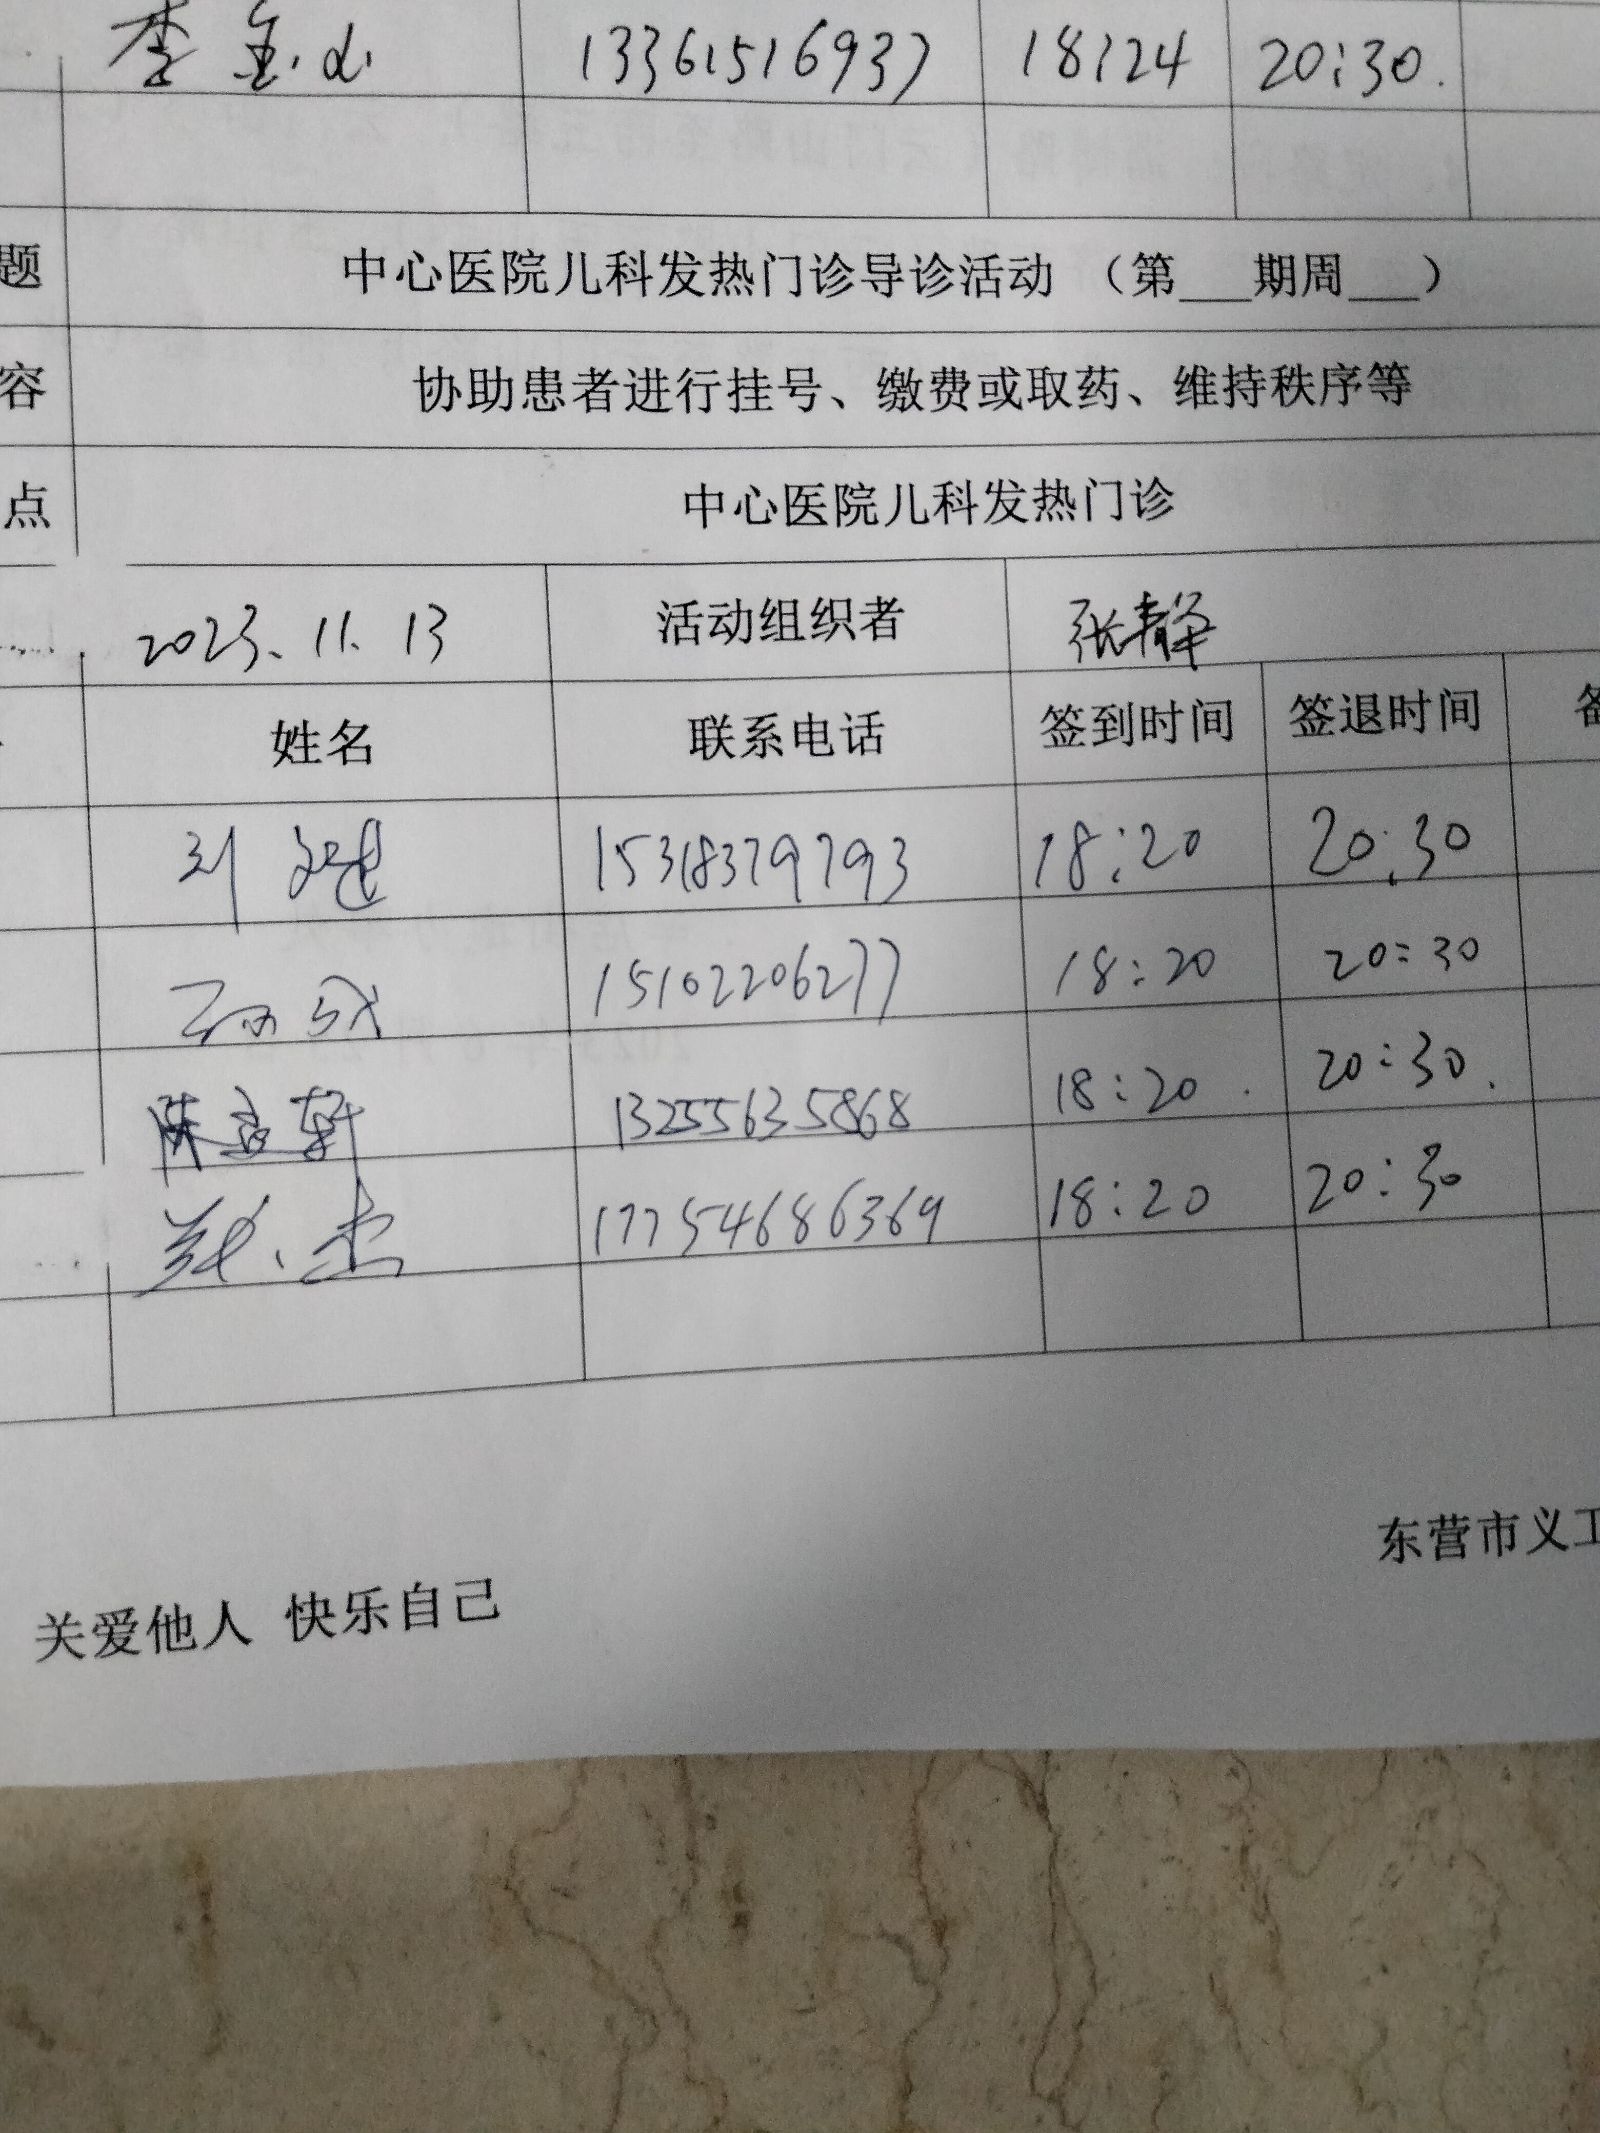 李金山 13361516937 18:24 20:30.
题 中心医院儿科发热门诊导诊活动 （第___期周___）
容 协助患者进行挂号、缴费或取药、维持秩序等
点 中心医院儿科发热门诊
2023.11.13 活动组织者 张静
姓名 联系电话 签到时间 签退时间 备
刘 15318379793 18:20 20:30
15102206277 18:20 20:30
陈 轩 13255635868 18:20. 20:30.
郑杰 17754686369 18:20 20:30
东营市义工
关爱他人 快乐自己